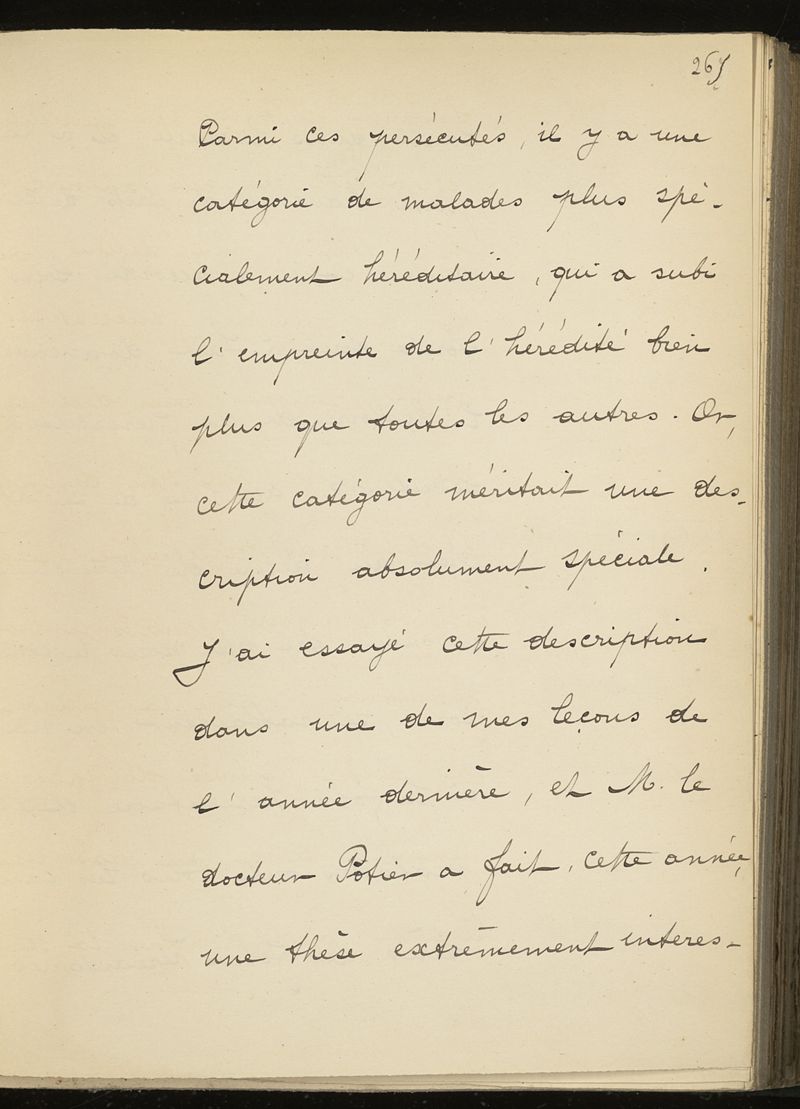 267
Parmi ces persécutés, il y a une
catégorie de malades plus spé-
cialement héréditaire, qui a subi
l'empreinte de l'hérédité bien
plus que toutes les autres. Or,
cette catégorie méritait une des-
cription absolument spéciale.
J'ai essayé cette description
dans une de mes leçons de
l'année dernière, et M. le
docteur Potier a fait, cette année,
une thèse extrêmement interes-